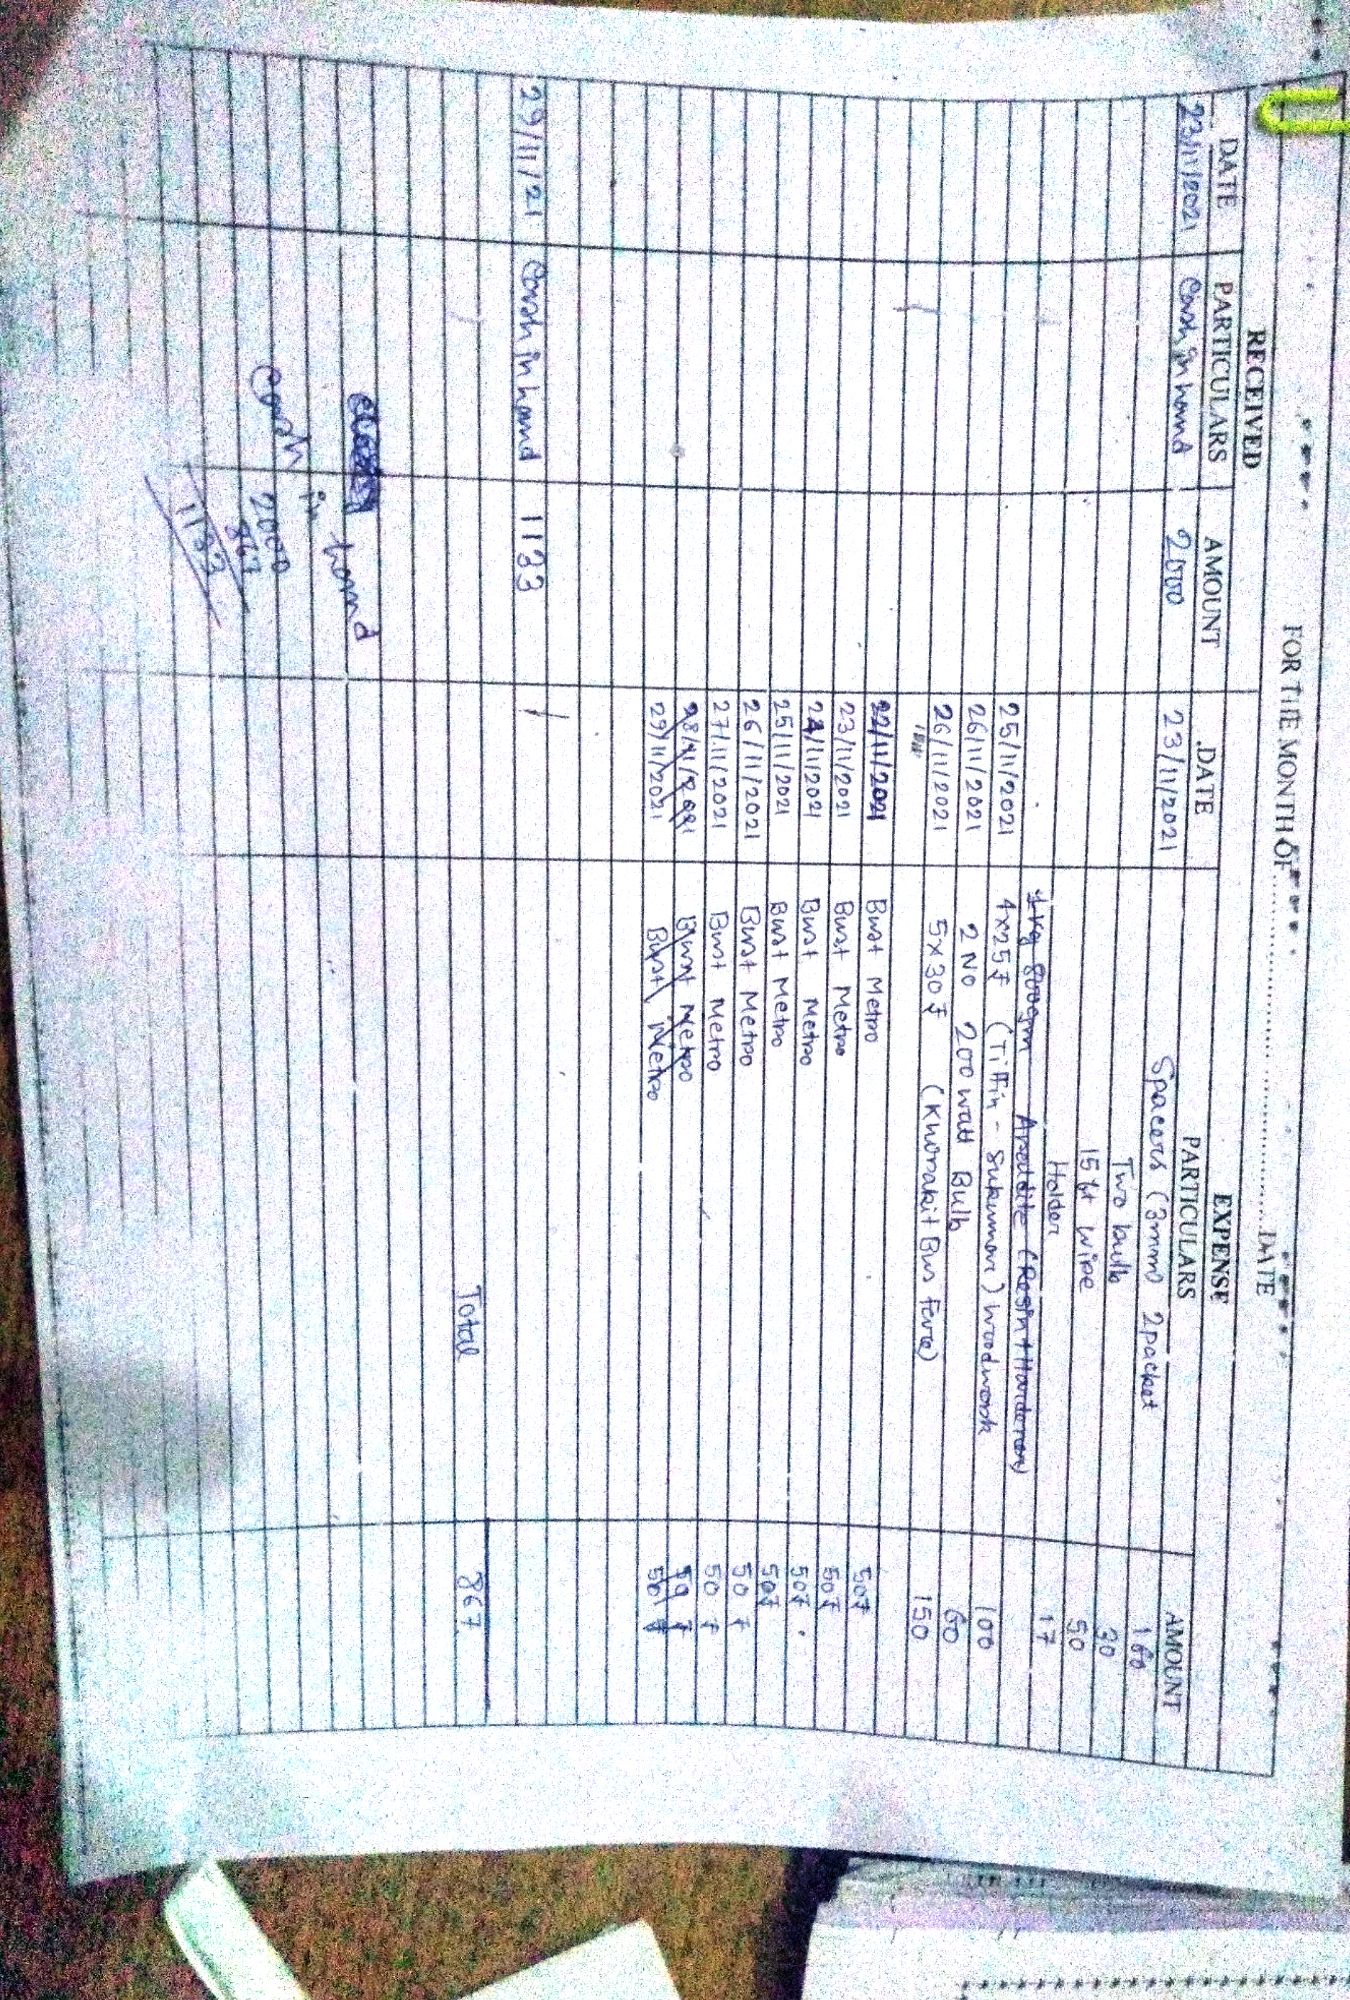 FOR THE MONTH OF ............................ DATE
RECEIVED EXPENSE
DATE PARTICULARS AMOUNT DATE PARTICULARS AMOUNT
23/11/2021 Cash in hand 2000 23/11/2021 Spacers (3mm) 2 packet 160
Two bulb 30
15 ft wire 50
Holder 17
1 kg 800gm Araldite (Resin + Hardener)
25/11/2021 4x25₹ (Tiffin - Sukumar) woodwork 100
26/11/2021 2 NO 200 watt Bulb 60
26/11/2021 5x30₹ (Khorakit Bus Fare) 150
22/11/2021 Bust Metro 50₹
23/11/2021 Bust Metro 50₹
24/11/2021 Bust Metro 50₹
25/11/2021 Bust Metro 50₹
26/11/2021 Bust Metro 50₹
27/11/2021 Bust Metro 50₹
28/11/2021 Bust Metro 50₹
29/11/2021 Bust Metro 50₹
29/11/21 Cash in hand 1133
Total 867
Cash in hand
2000
867
1133